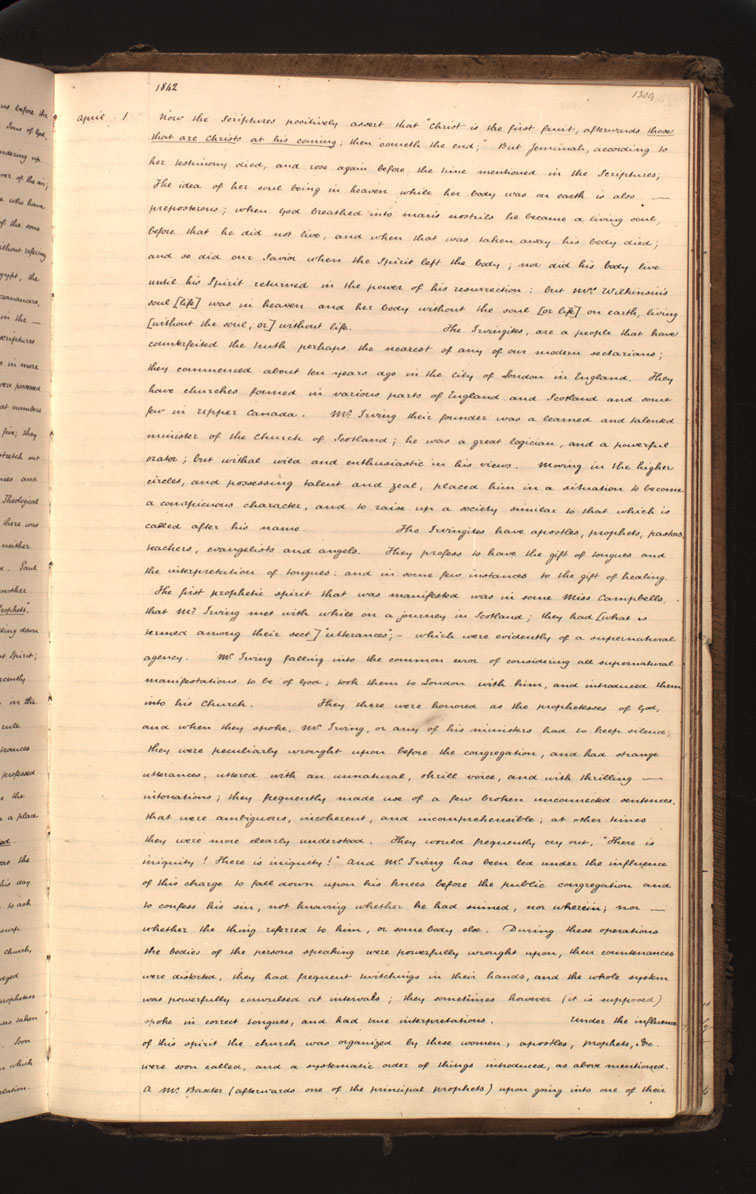 1842
1309
april 1 Now the Scriptures positively assert that "Christ is the first fruit, afterwards those
that are Christs at his coming; then cometh the end;" But Jemimah, according to
her testimony died, and rose again before the time mentioned in the Scriptures;
The idea of her soul being in heaven while her body was on earth is also —
preposterous; when God breathed into man's nostrils he became a living soul,
before that he did not live, and when that was taken away his body died;
and so did our Savior when the Spirit left the body; nor did his body live
until his Spirit returned in the power of his resurrection: but Mrs. Wilkinson's
soul [life] was in heaven and her body without the soul [or life] on earth, living
[without the soul, or] without life. The Irvingites, are a people that have
counterfeited the truth perhaps the nearest of any of our modern sectarians;
they commenced about ten years ago in the City of London in England. They
have churches formed in various parts of England and Scotland and some
few in Upper Canada. Mr. Irving their founder was a learned and talented
minister of the Church of Scotland; he was a great logician, and a powerful
orator; but withal wild and enthusiastic in his views. Moving in the higher
circles, and possessing talent and zeal, placed him in a situation to become
a conspicuous character, and to raise up a society similar to that which is
called after his name. The Irvingites have apostles, prophets, pastors,
teachers, evangelists and angels. They profess to have the gift of tongues and
the interpretation of tongues: and in some few instances to the gift of healing.
The first prophetic spirit that was manifested was in some Miss Campbells,
that Mr. Irving met with while on a journey in Scotland; they had [what is
termed among their sect] "utterances", - which were evidently of a supernatural
agency. Mr Irving falling into the common error of considering all supernatural
manifestations to be of God; took them to London with him, and introduced them
into his Church. They there were honored as the prophetesses of God,
and when they spoke, Mr Irving, or any of his ministers had to keep silence;
they were peculiarly wrought upon before the congregation, and had strange
utterances, uttered with an unnatural, shrill voice, and with thrilling —
intonations; they frequently made use of a few broken unconnected sentences,
that were ambiguous, incoherent, and incomprehensible; at other times
they were more clearly understood. They would frequently cry out, "There is
iniquity! There is iniquity!" and Mr. Irving has been led under the influence
of this charge to fall down upon his knees before the public congregation and
to confess his sin, not knowing whether he had sinned, nor wherein; nor —
whether the thing referred to him, or some body else. During these operations
the bodies of the persons speaking were powerfully wrought upon, their countenances
were distorted, they had frequent twitchings in their hands, and the whole system
was powerfully convulsed at intervals; they sometimes however (it is supposed)
spoke in correct tongues, and had true interpretations. Under the influence
of this spirit the church was organized by these women; apostles, prophets, &c.
were soon called, and a systematic order of things introduced, as above mentioned.
A Mr. Baxter (afterwards one of the principal prophets) upon going into one of their